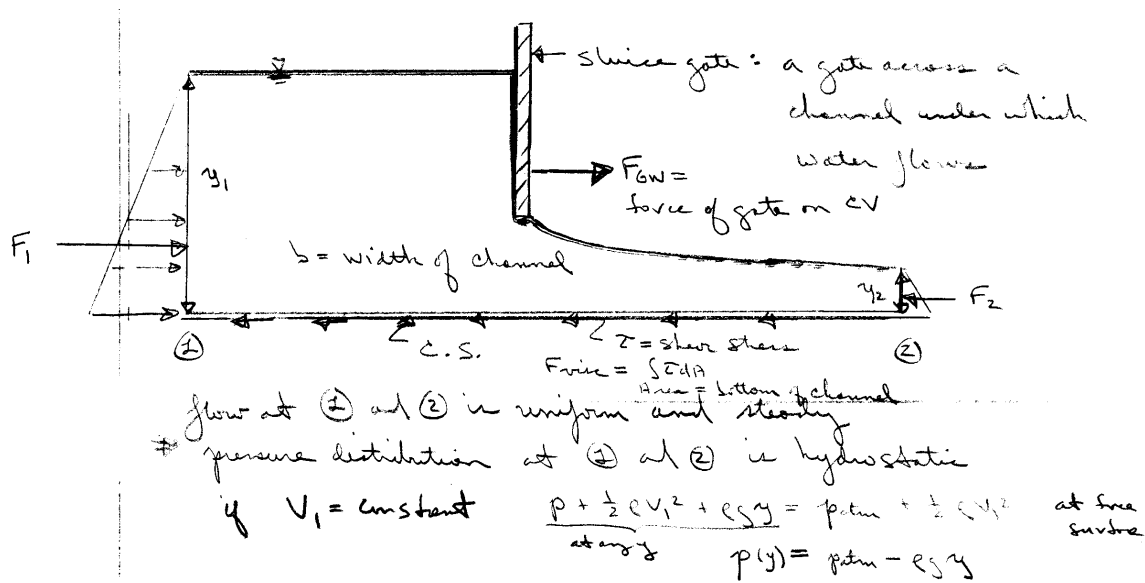 sluice gate : a gate across a
channel under which
water flows
F_GW =
force of gate on CV
y₁
F₁
b = width of channel
y₂
F₂
① C.S. τ = shear stress ②
Fvisc = ∫τdA
Area = bottom of channel
flow at ① and ② is uniform and steady
pressure distribution at ① and ② is hydrostatic
if V₁ = constant p + ½ρV₁² + ρgy = patm + ½ρV₁² at free
surface
at any y
p(y) = patm - ρgy